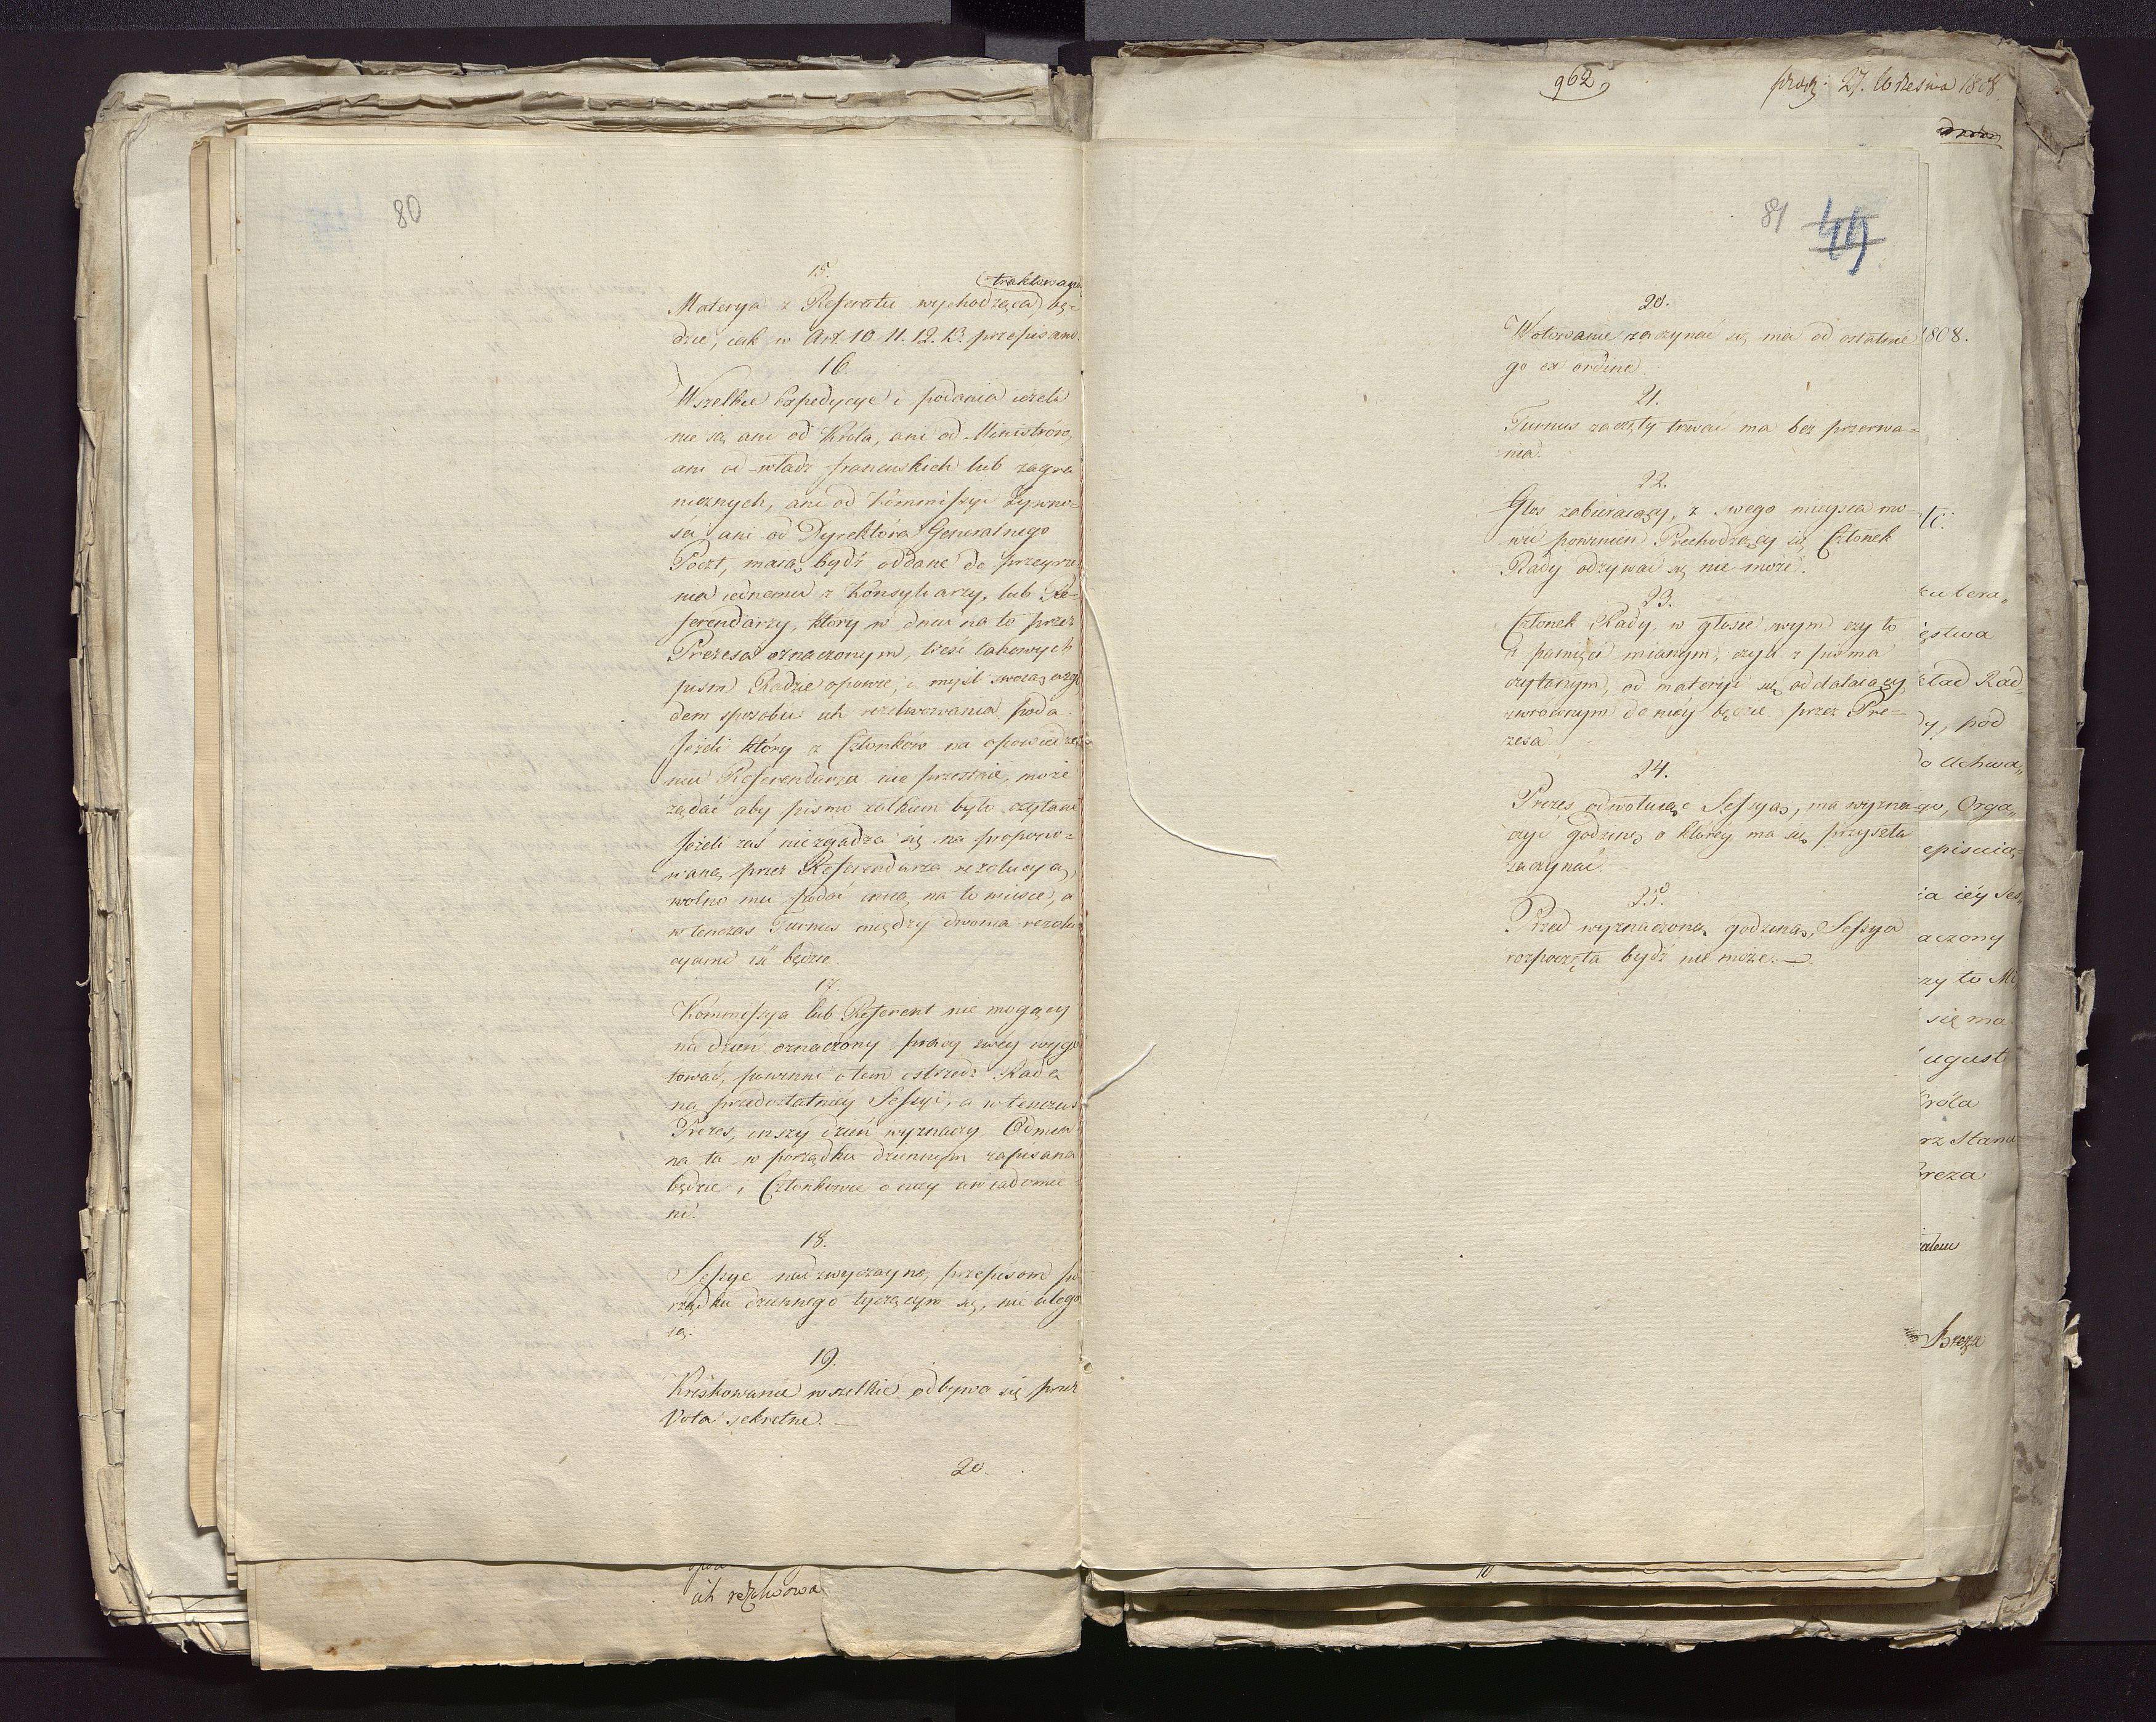 80
15.
traktowana
Materya z Referatu wychodząca bę=
dzie, iak w Art. 10. 11. 12. 13. przepisano.
16.
Wszelkie Expedycye i podania ieżeli
nie są ani od Króla, ani od Ministrów,
ani od władz francuskich lub zagra
nicznych, ani od Kommissyi Żywno=
ści ani od Dyrektora Generalnego
Poczt, maią bydź oddane do przeyrze
nia iednemu z Konsyliarzy, lub Re=
ferendarzy, który w dniu na to przez
Prezesa oznaczonym, treść takowych
pism Radzie opowie, i myśl swoią wzglę
dem sposobu ich rezolwowania poda.
Jeżeli który z Członków na opowiedze
niu Referendarza nie przestaie, może
żądać aby pismo całkiem było czytane
Jeżeli zaś niezgadza się na propono=
waną przez Referendarza rezolucyą,
wolno mu podać inną na to miesce, a
wtenczas Turnus między dwoma rezolu
cyami iść będzie.
17.
Kommissya lub Referent nie mogący
na dzień oznaczony pracy swéy wygo
tować, powinni o tem ostrzedz Radę
na przedostatniéy Sessyi, a wtenczas
Prezes, inszy dzień wyznaczy Odmia
na ta w porządku dziennym zapisana
będzie i Członkowie o niey uwiadomie
ni.
18.
Sessye nadzwyczayne, przepisom po
rządku dziennego tyczącym się, nie ulega
ią.
19.
Kreskowanie wszelkie odbywa się przez
Vota sekretne. —
20.
ich rezolwowa
962
27. Września 1808
81
44
20.
Wotowanie zaczynać się ma od ostatnie
go ex ordine.
21.
Turnus zaczęty trwać ma bez przerwa=
nia.
22.
Głos zabieraiący, z swego mieysca mó=
wić powinien Przechodzący się Członek
Rady odzywać się nie może.
23.
Członek Rady, w głosie swym czy to
z pamięci mianym, czyli z pisma
czytanym, od materyi się oddalaiący,
zwróconym do niéy będzie przez Pre=
zesa.
24.
Prezes odwołuiąc Sessyą, ma wyzna=
czyć godzinę o któréy ma się przyszła
zaczynać.
25.
Przed wyznaczoną godziną, Sessya
rozpoczęta bydź nie może. —
1808.
ład Rad
dy, pod
do Uchwa„
go, Orga„
ia iéy Ses„
aczony
zy to Mi
się ma
ugust
Króla
rz Stanu
Breza
Breza